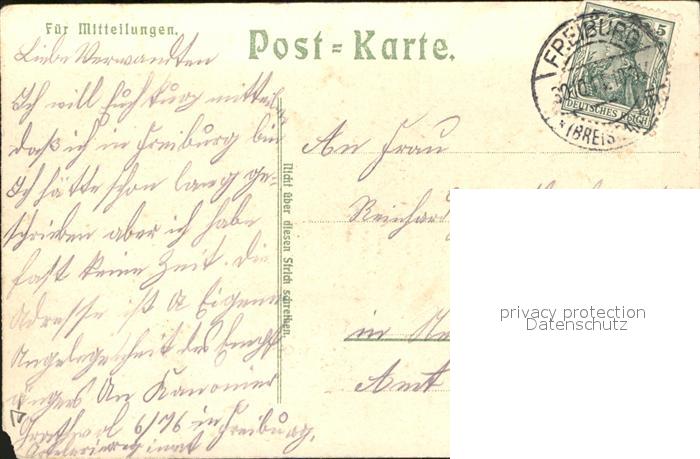 Für Mitteilungen.
Post=Karte.
Liebe Verwandten
Ich will Euch kurz mitteil
daß ich in Freiburg bin
Ich hätte schon lang ge=
schrieben aber ich habe
fast keine Zeit. die
Adresse ist A Eigene
Angelegenheit des Empf
ängers An Kanonier
6/76 in Freiburg,
An Frau
Reinhard
in
Amt
Nicht über diesen Strich schreiben.
FREIBURG
(BREIS
5
DEUTSCHES REICH
privacy protection
Datenschutz